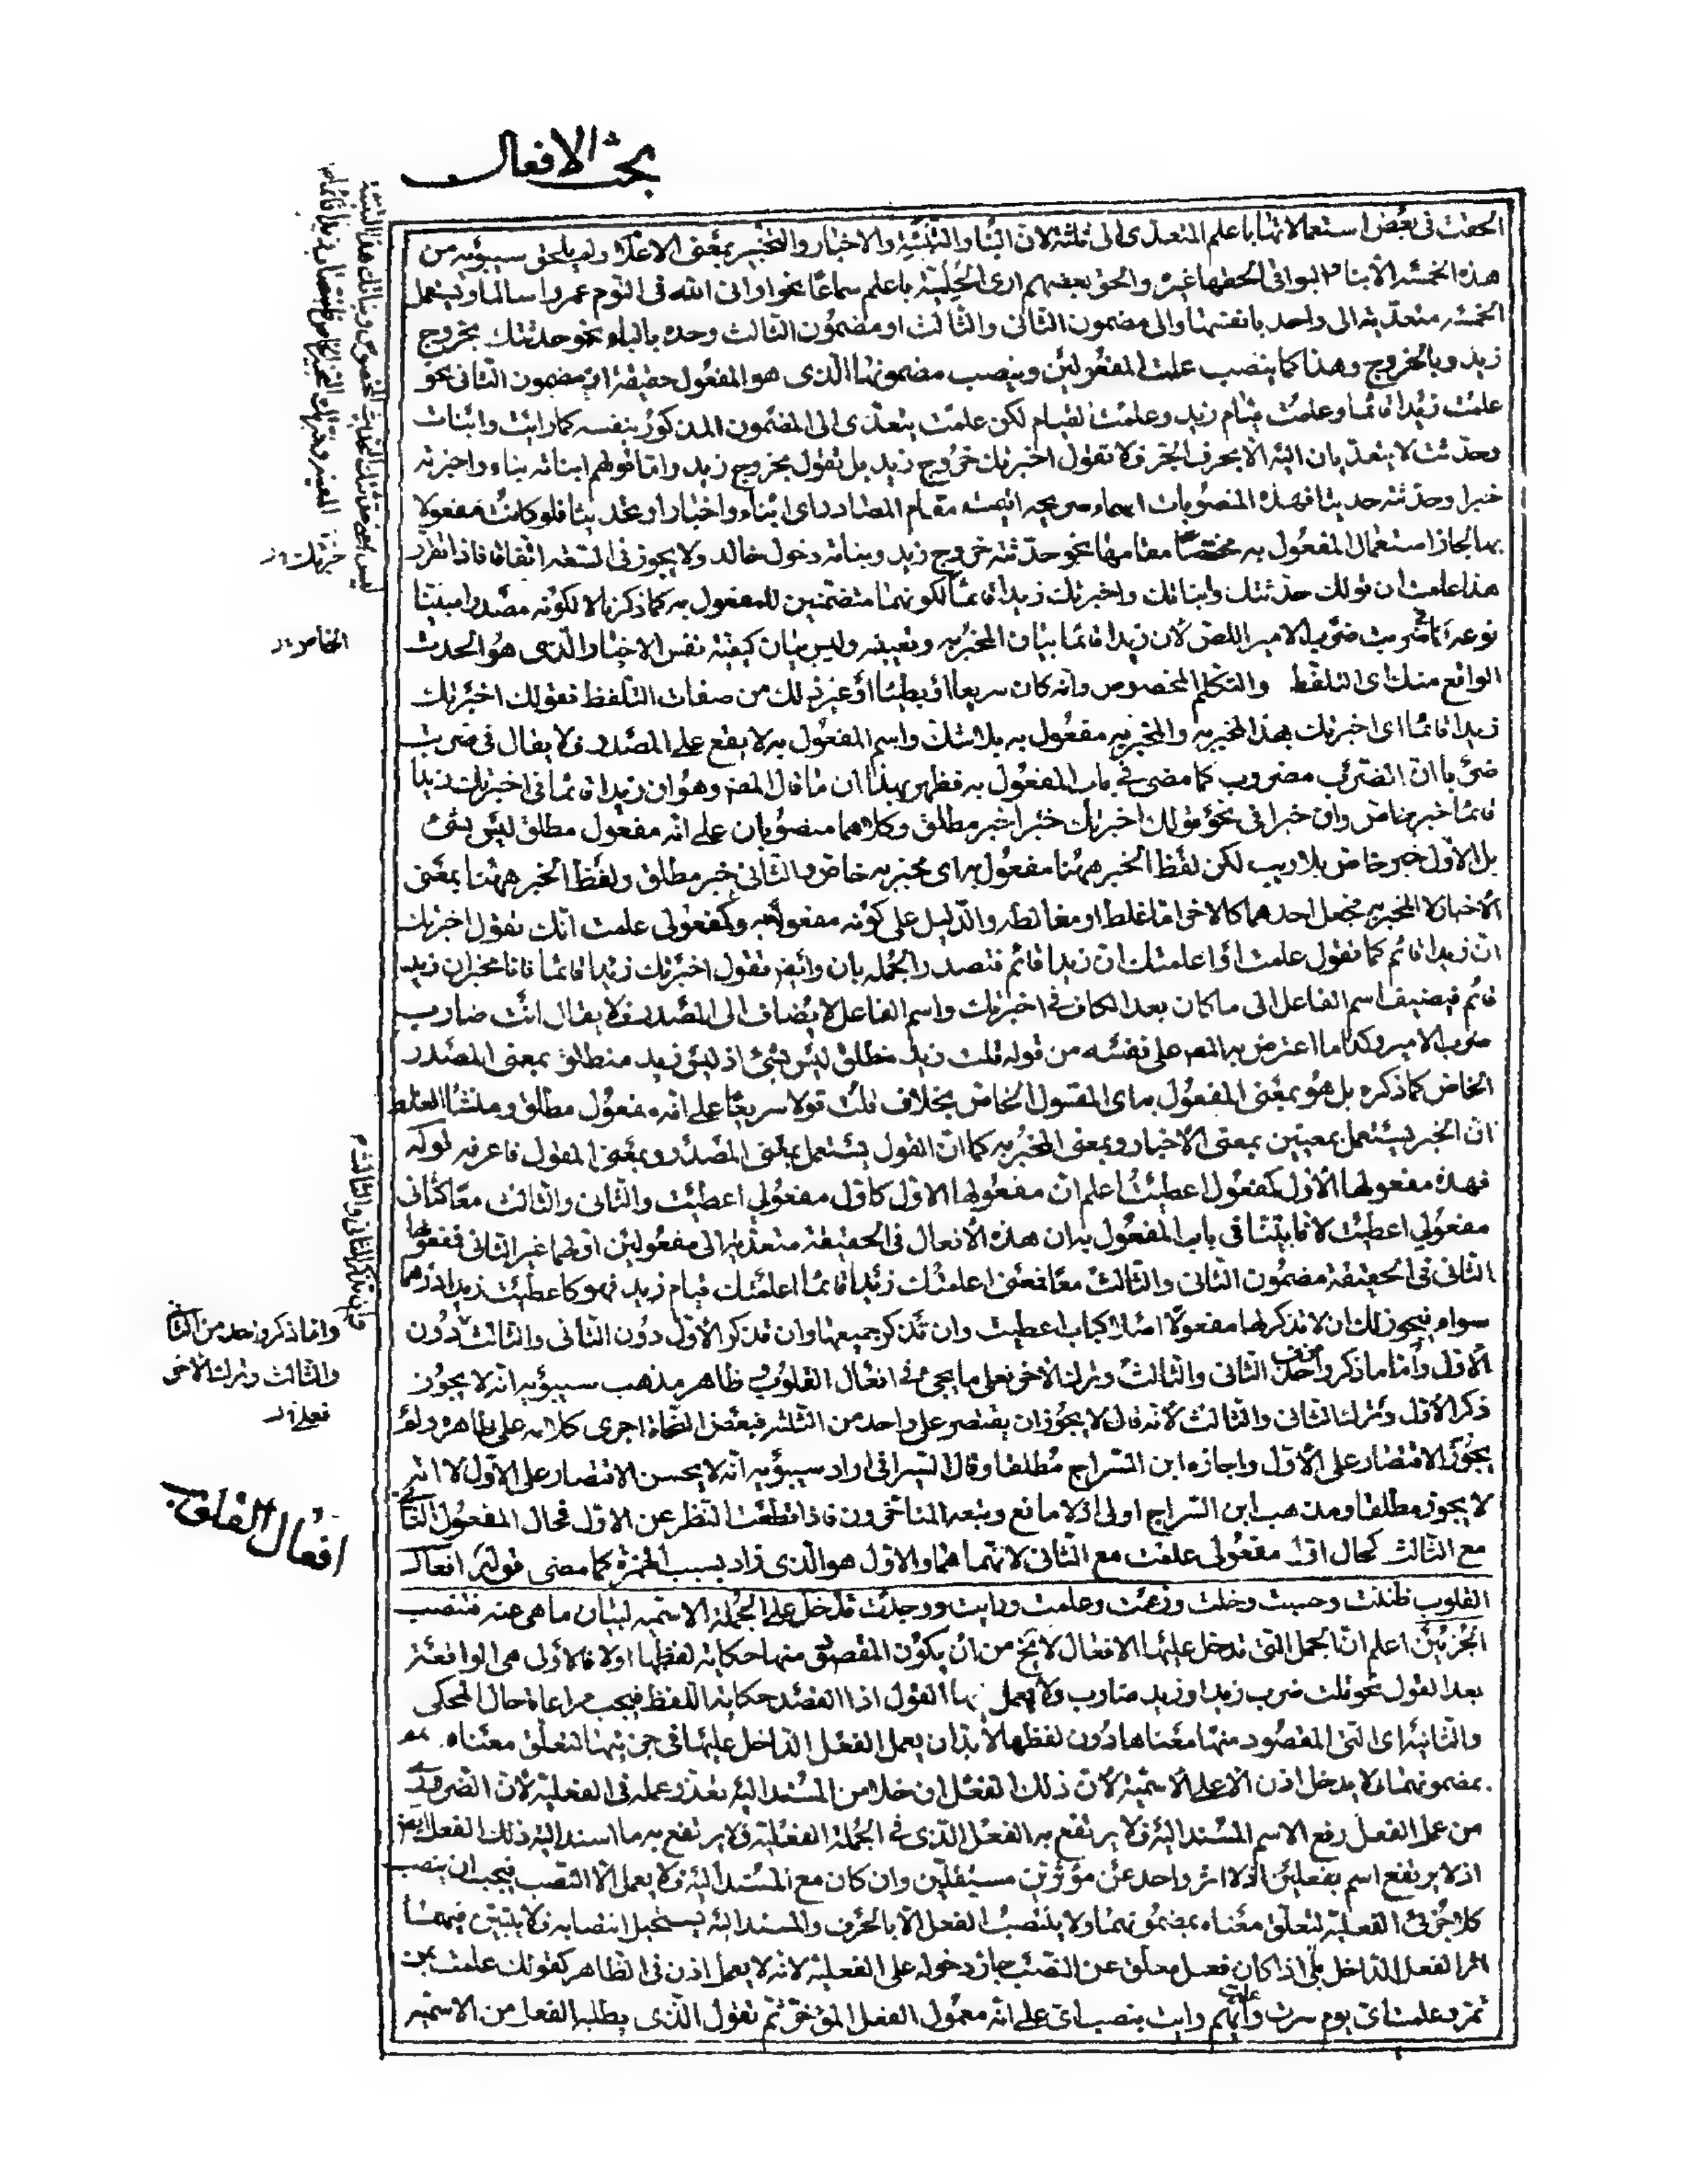 بحث الافعال
الحقت فى بعض استعمالاتها باعلم المتعدى الى ثلثة لان الانباء والتنبئة والاخبار والتخبير بمعنى الاعلام ولم يلحق سيبويه من
هذه الخمسة الا نبأ والبواقى الحقها غيره والحق بعضهم ارى الحلمية باعلم سماعا نحو ارانى الله فى النوم عمروا سالما ويستعمل
الخمسة متعدية الى واحد بانفسها والى مضمون الثانى والثالث او مضمون الثالث وحده بالباء نحو حدثتك بخروج
زيد وبالخروج وهذا كما ينصب علمت المفعولين وينصب مضمونهما الذى هو المفعول حقيقة او مضمون الثانى نحو
علمت زيدا قائما وعلمت قيام زيد وعلمت القيام لكن علمت يتعدى الى المضمون المذكور بنفسه كما رايت وانبات
وحدثت لا يتعديان اليه الا بحرف الجر فلا تقول اخبرتك خروج زيد بل تقول بخروج زيد واما قولهم انباته نباء واخبرته
خبرا وحدثته حديثا فهذه المنصوبات اسماء صريحة اقيمت مقام المصادر اى انباء واخبارا وتحديثا فلو كانت مفعولا
بها لجاز استعمال المفعول به مختصا مقامها نحو حدثته خروج زيد ونباته دخول خالد ولا يجوز فى السعة اتفاقا فاذا تقرر
هذا علمت ان قولك حدثتك وانباتك واخبرتك زيدا قائما لكونهما متضمنين للمفعول به كما ذكرنا لا لكونه مصدرا مبينا
نوعه كما فى ضربت ضرب الامير اللص لان زيدا قائما بيان المخبر به وتعيينه وليس بيان كيفية نفس الاخبار الذى هو الحدث
الواقع منك اى التلفظ والتكلم المخصوص وانه كان سريعا او بطيئا او غير ذلك من صفات التلفظ فقولك اخبرتك
زيدا قائما اى اخبرتك بهذا المخبر به والمخبر به مفعول به بلا شك واسم المفعول به لا يقع على المصدر فلا يقال فى ضربت
ضربا ان الضرب مضروب كما مضى فى باب المفعول به فظهر بهذا ان ما قال المص وهو ان زيدا قائما فى اخبرتك زيدا
قائما خبر خاص وان خبرا فى نحو قولك اخبرتك خبرا خبر مطلق وكلاهما منصوبان على انه مفعول مطلق ليس بشئ
بل الاول خبر خاص بلا ريب لكن لفظ الخبر ههنا مفعول به اى مخبر به خاص والثانى خبر مطلق ولفظ الخبر ههنا بمعنى
الاخبار لا المخبر به فجعل احدهما كالاخر اما غلط او مغالطة والدليل على كونه مفعولا به وكمفعولى علمت انك تقول اخبرتك
ان زيدا قائم كما تقول علمت او اعلمتك ان زيدا قائم فتصدر الجملة بان وايضا تقول اخبرتك زيدا قائما فانا مخبرك زيد
قائم فيضيف اسم الفاعل الى ما كان بعد الكاف فى اخبرتك واسم الفاعل لا يضاف الى المصدر فلا يقال انت ضارب
ضرب الامير وكذا ما اعترض به المص على نفسه من قوله قلت زيد منطلق ليس بشئ اذ ليس زيد منطلق بمعنى المصدر
الخاص كما ذكره بل هو بمعنى المفعول به اى المقول الخاص بخلاف قلت قولا سريعا على انه مفعول مطلق ومنشا الغلط
ان الخبر يستعمل بمعنيين بمعنى الاخبار وبمعنى المخبر به كما ان القول يستعمل بمعنى المصدر وبمعنى المقول فاعرفه قوله
فهذه مفعولها الاول كمفعول اعطيت اعلم ان مفعولها الاول كاول مفعولى اعطيت والثانى والثالث معا كثانى
مفعولى اعطيت لانا بينا فى باب المفعول به ان هذه الافعال فى الحقيقة متعدية الى مفعولين اولهما غير الثانى فمفعولها
الثانى فى الحقيقة مضمون الثانى والثالث معا فمعنى اعلمتك زيدا قائما اعلمتك قيام زيد فهو كاعطيت زيدا درهما
سواء فيجوز لك ان لا تذكر لها مفعولا اصلا كباب اعطيت وان تذكر جميعها وان تذكر الاول دون الثانى والثالث دون
الاول واما ما ذكر واحذف الثانى والثالث وترك الاخر فعلى ما يجئ فى افعال القلوب ظاهر مذهب سيبويه انه لا يجوز
ذكر الاول وترك الثانى والثالث لانه قال لا يجوز ان يقتصر على واحد من الثلثة فبعض النحاة اجرى كلامه على ظاهره ولم
يجوز الاقتصار على الاول واجازه ابن السراج مطلقا وقال السيرافى اراد سيبويه انه لا يحسن الاقتصار على الاول لا انه
لا يجوز مطلقا ومذهب ابن السراج اولى اذ لا مانع وتبعه المتاخرون فاذا قطعت النظر عن الاول فحال المفعول الثانى
مع الثالث كحال اول مفعولى علمت مع الثانى لانهما هما والاول هو الذى زاد بسبب الهمزة كما مضى قوله افعال
القلوب ظننت وحسبت وخلت وزعمت وعلمت ورايت ووجدت تدخل على الجملة الاسمية لبيان ما هى عنه فتنصب
الجزئين اعلم ان الجمل التى تدخل عليها الافعال لا يخ من ان يكون المقصود منها حكاية لفظها اولا فالاولى هى الواقعة
بعد القول نحو قلت ضرب زيد او زيد ضارب ولا يعمل بها القول اذا القصد حكاية اللفظ فيجب مراعاة حال المحكى
والثانية اى التى المقصود منها معناها دون لفظها لا بد ان يعمل الفعل الداخل عليها فى جزئيها لتعلق معناه
بمضمونهما فلا يدخل اذن الا على الاسمية لان ذلك الفعل ان خلا من المسند اليه تعذر عمله فى الفعلية لان الضرورى
من عمل الفعل رفع الاسم المسند اليه فلا يرتفع به الفعل الذى فى الجملة الفعلية ولا يرتفع به ما اسند اليه ذلك الفعل ايضا
اذ لا يرتفع اسم بفعلين اذ لا اثر واحد عن مؤثرين مستقلين وان كان مع المسند اليه فلا يعمل الا النصب فيجب ان ينصب
كلا جزئى الفعلية لتعلق معناه بمضمونهما ولا ينتصب الفعل الا بالحرف والمسند اليه يستحيل انتصابه فلا يتبين فيهما
اثر الفعل الداخل بلى اذا كان فعل معلق عن النصب جاز دخوله على الفعلية لانه لا يعمل اذن فى الظاهر كقولك علمت بمن
تمر وعلمت اى يوم سرت وايهم رايت بنصب اى على انه معمول الفعل المؤخر ثم نقول الذى يطلبه الفعل من الاسمية
خبرتك
الخاص
واما ذكر واحد من الثانى
والثالث وترك الاخر
فعلى
افعال القلوب